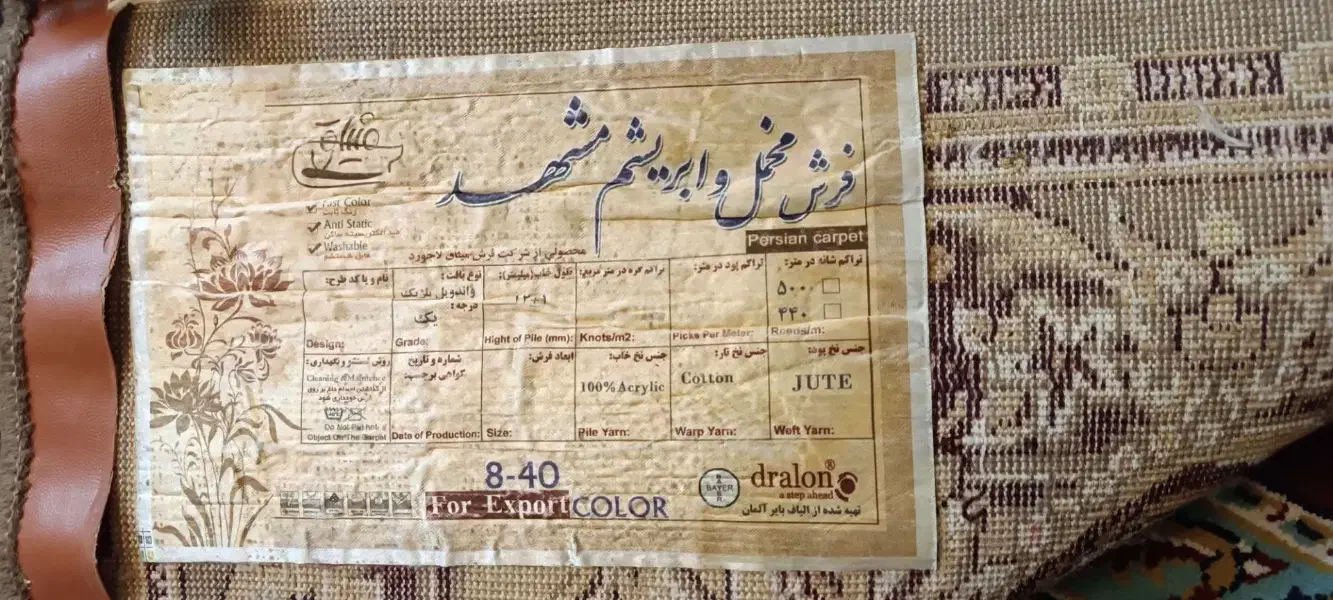 فرش مخمل و ابریشم مشهد
Persian carpet
Fast Color
رنگ ثابت
Anti Static
ضد الکتریسیته ساکن
Washable
قابل شستشو
محصولی از شرکت فرش مینای لاجورد
تراکم شانه در متر:
۵۰۰
۴۴۰
Reeds/m:
تراکم پود در متر:
Picks Per Meter:
تراکم گره در متر مربع:
Knots/m2:
طول خاب (میلیمتر):
۱۲±۱
Hight of Pile (mm):
نوع بافت:
واندویل بلژیک
درجه:
یک
Grade:
نام و یا کد طرح:
Design:
جنس نخ پود:
JUTE
Weft Yarn:
جنس نخ تار:
Cotton
Warp Yarn:
جنس نخ خاب:
100% Acrylic
Pile Yarn:
ابعاد فرش:
Size:
شماره و تاریخ
گواهی برچسب
Date of Production:
روش شستشو و نگهداری:
Cleaning & Maintence
Do Not Put hot
Object On The Carpet
8-40
For Export COLOR
BAYER
dralon®
a step ahead
تهیه شده از الیاف بایر آلمان